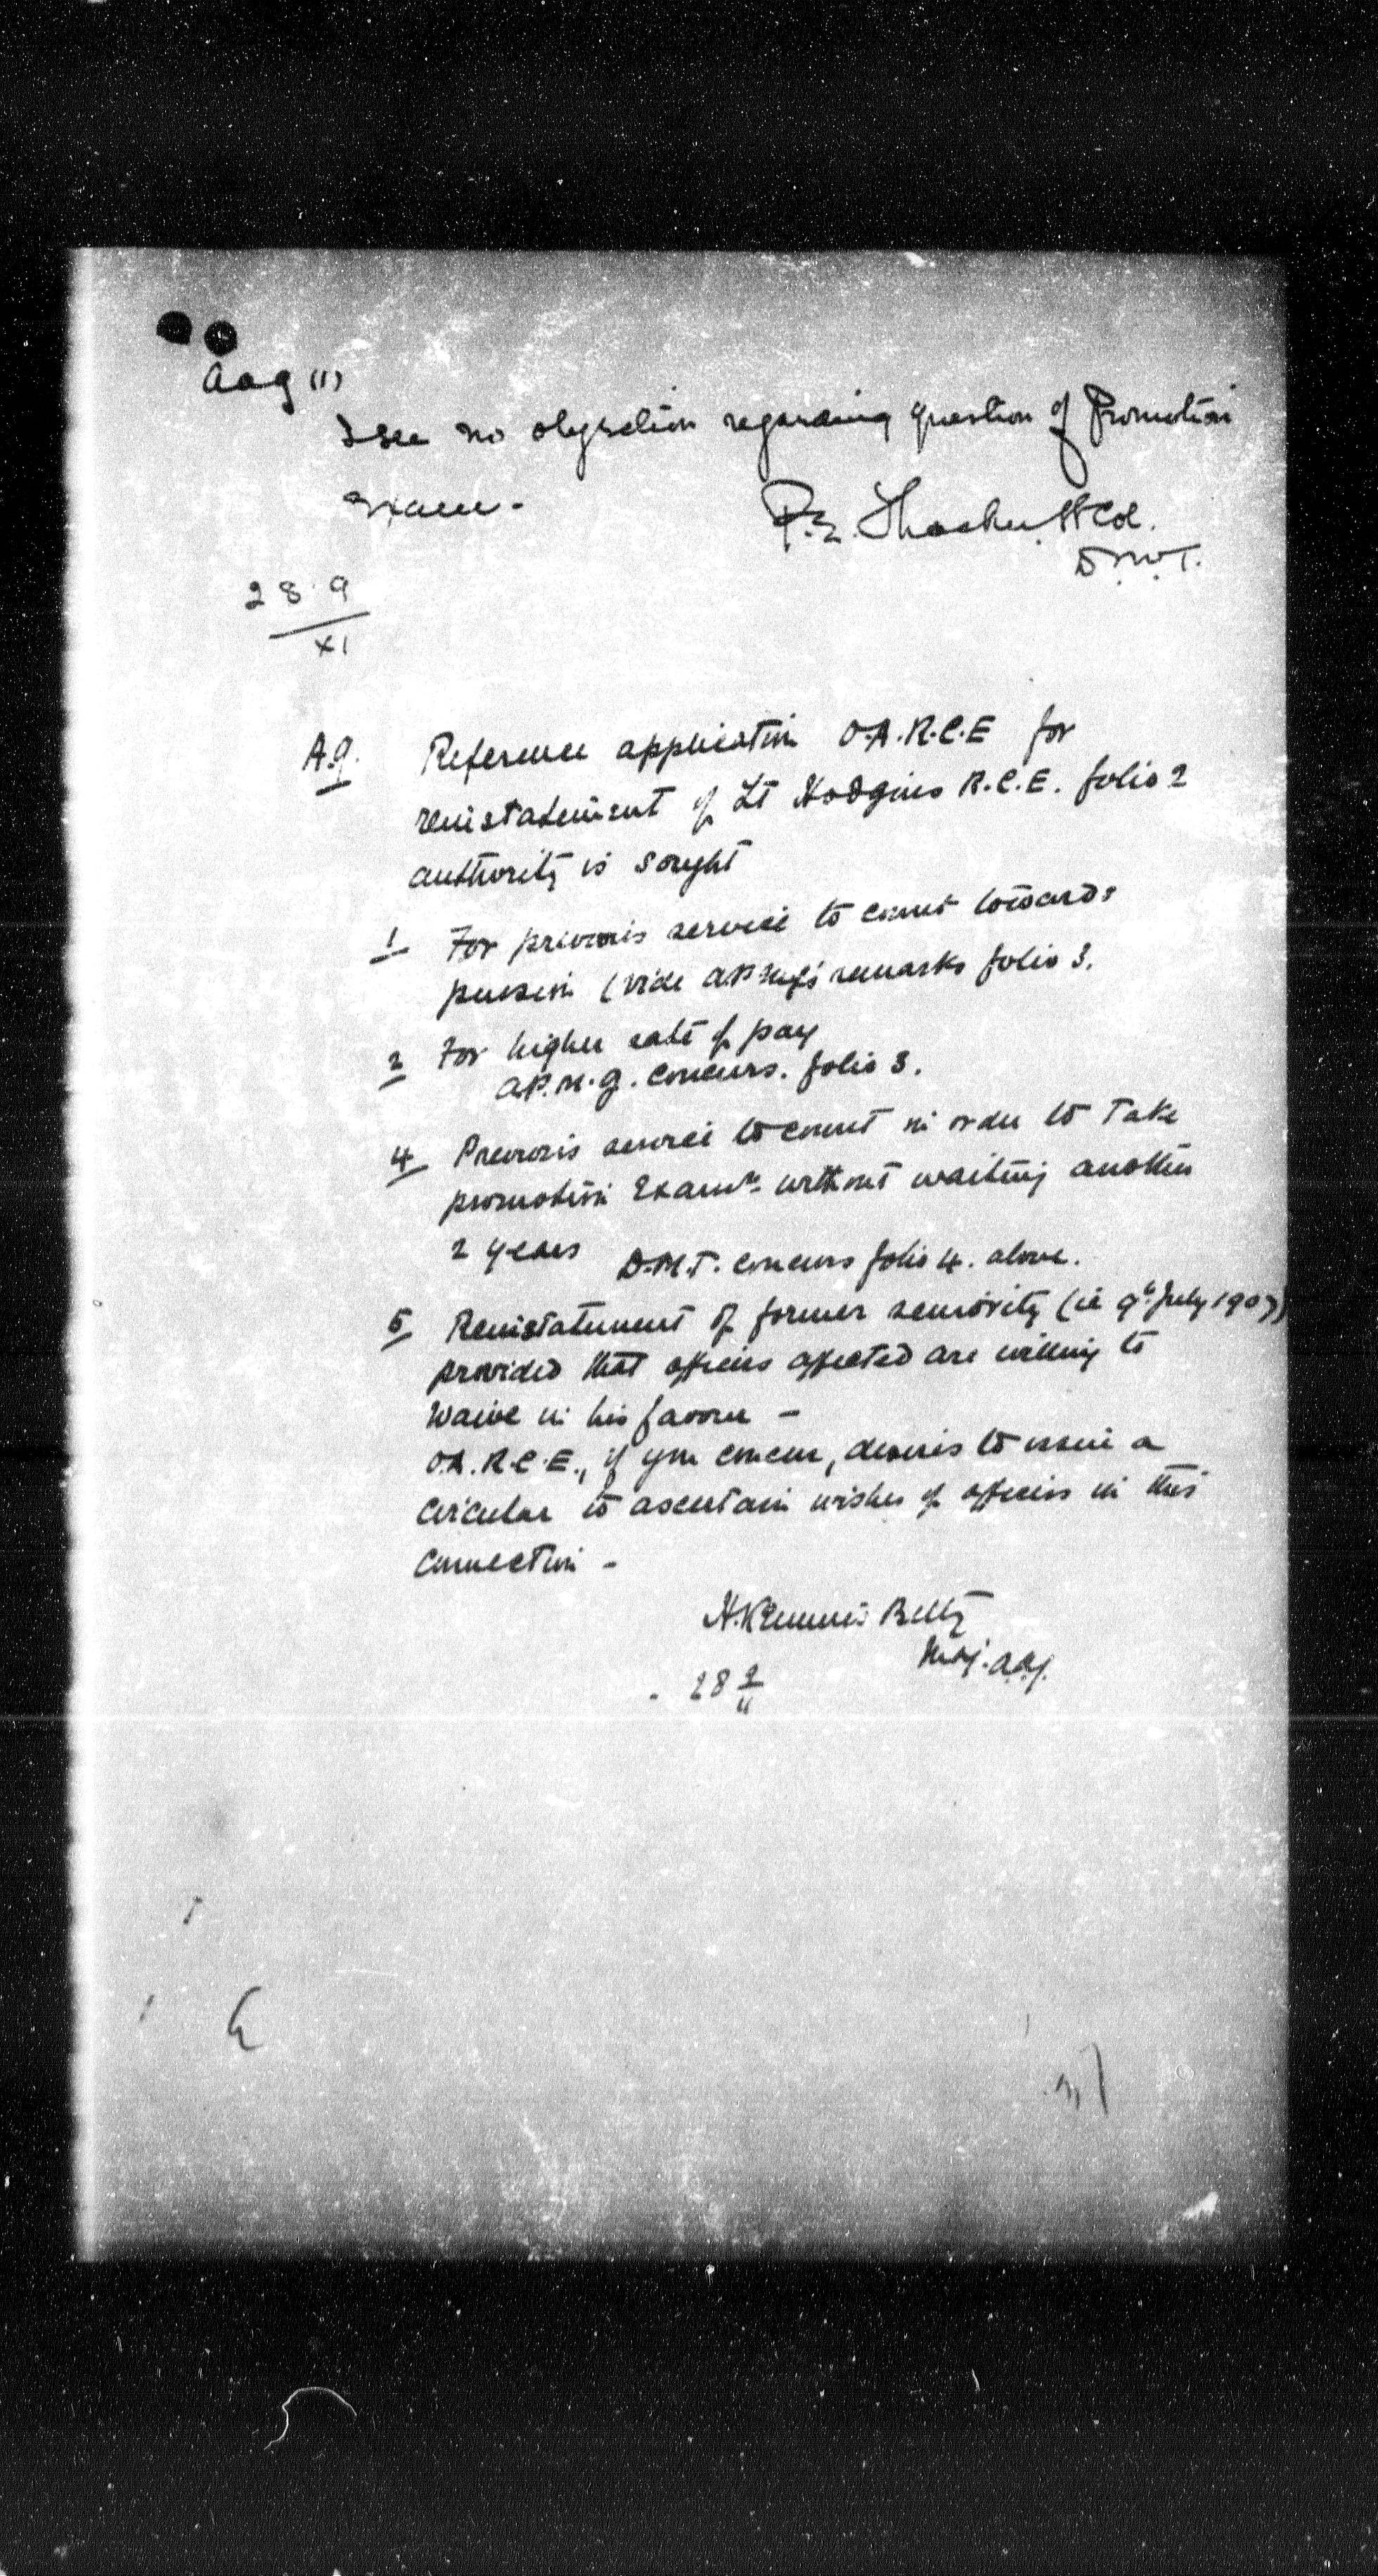 aag (1)
I see no objection regarding question of Promotion
Exam -
P.E. Thacker Lt Col.
D.M.T.
28.9
XI
A.G. Reference application O.A.R.C.E for
reinstatement of Lt Hodgins R.C.E. folio 2
authority is sought
1 For previous service to count towards
pension (vide remarks folio 3.
2 For higher rate of pay
a.P.M.G. concurs. folio 3.
4 Previous service to count in order to take
promotion Examn. without waiting another
2 years D.M.T. concurs folio 4. above.
5 Reinstatement of former seniority (ie 9th July 1907)
provided that officers affected are willing to
waive in his favour -
O.A.R.C.E., if you concur, desires to issue a
circular to ascertain wishes of officers in this
connection -
H. Kemmis Betty
Maj. a.a.g.
28 9
11